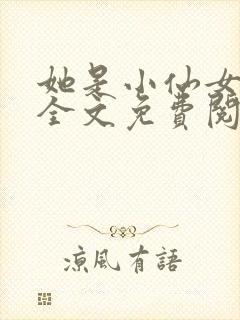 她是小仙女
全文免費閱
涼風有語